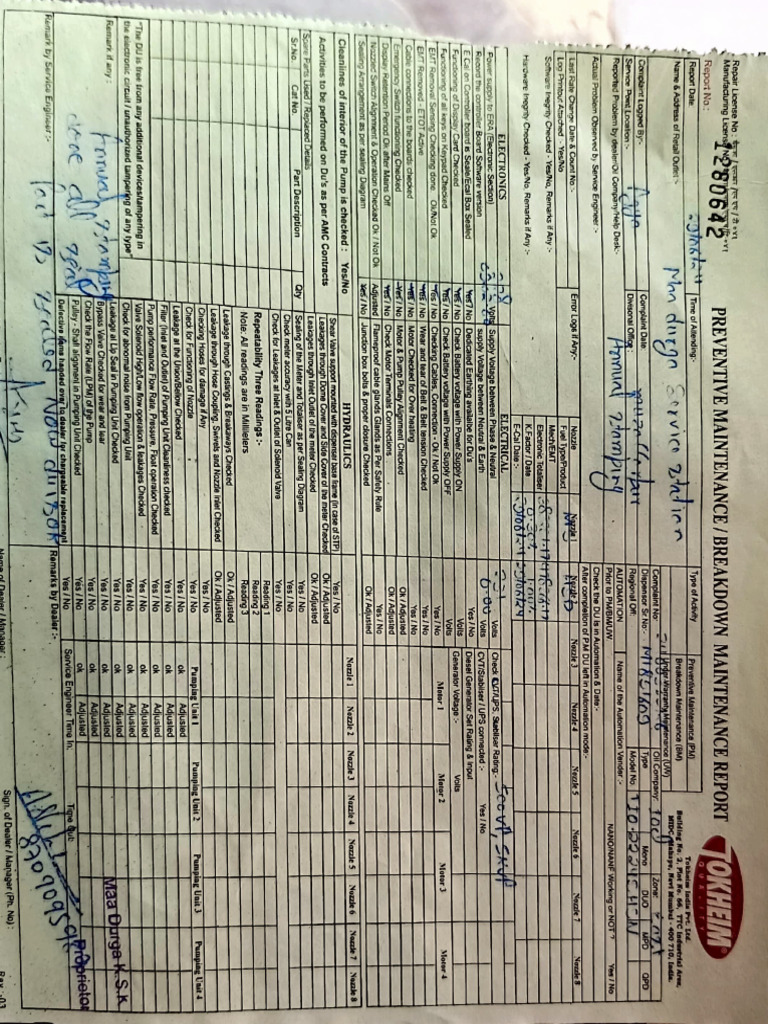 PREVENTIVE MAINTENANCE / BREAKDOWN MAINTENANCE REPORT
TOKHEIM
QUALITY
Tokheim India Pvt. Ltd.
Building No. 2, Plot No. 66, TTC Industrial Area,
MIDC, Mahape, Navi Mumbai - 400 710, India.
Repair License No :
Manufacturing License No
1280642
Report No.:
Report Date: Time of Attending:- Type of Activity Preventive Maintenance (PM)
Breakdown Maintenance (BM)
Under Warranty Maintenance (UW)
Name & Address of Retail Outlet:- Maa durga Service station
Complaint No: Oil Company: IOCL Zone:
Complaint Logged By:- Complaint Date:
Dispenser Sr No:- Type Mono DUO MPD QPD
Service Point Location:- Agra Divisional Office:
Regional Off: Model No:
Reported Problem by dealer/Oil Company/Help Desk:- Annual Stamping
AUTOMATION Name of the Automation Vender :- NANO/NANF Working or NOT ? Yes / No
Prior to PM/BM/UW
Actual Problem Observed by Service Engineer :-
Check the DU is in Automation & Date:-
After completion of P.M DU left in Automation mode:-
Last Rate Change Date & Count No:- Error Logs if Any:-
Nozzle Nozzle 1 Nozzle 3 Nozzle 4 Nozzle 5 Nozzle 6 Nozzle 7 Nozzle 8
Log Printout Attached - Yes/No
Fuel Type/Product
Software Integrity Checked - Yes/No, Remarks if Any :-
Mech/EMT
Electronic Totaliser
Hardware Integrity Checked - Yes/No, Remarks if Any :-
K.Factor / Date
E-Cal Date :-
ELECTRONICS
Power supply to ERA (Electronic Section) Volts
Record the controller Board Software version
E Cal on Controller board is Seale/Ecal Box Sealed Yes / No
Functioning of Display Card Checked Yes / No
Functioning of all keys on Keypad Checked Yes / No
EMT Remover Sensing Checking done. Ok/Not Ok Yes / No
EMT Removed - ETOT Active Yes / No
Cable connections to the boards checked Yes / No
Emergency Switch functioning Checked Yes / No
Display Retention Period Ok after Mains Off Yes / No
Nozzle Switch Alignment & Operation Checked Ok / Not Ok Adjusted
Sealing Arrangement as per sealing Diagram Yes / No
ELECTRICAL
Supply Voltage between Phase & Neutral Volts
supply Voltage between Neutral & Earth 0.00 Volts
Dedicated Earthing available for DU's Yes / No
Check Battery voltage with Power Supply ON Volts
Check Battery voltage with Power Supply OFF Volts
Checking Cables Connection - Ok / Not Ok Yes / No
Wear and tear of Belt & Belt tension Checked Yes / No
Motor Checked for Over heating Yes / No
Motor & Pump Pulley Alignment Checked Ok / Adjusted
Check Motor Terminals Connections Ok / Adjusted
Flameproof cable glands Glands as Per Safety Rule Yes / No
Junction box bolts & proper closure Checked Ok / Adjusted
Check CVT/UPS. Stabiliser Rating:- 500VA, 5KVA
CVT/Stabiliser / UPS connected :- Yes / No
Diesel Generator Set Rating & Input
Generator Voltage :- Volts
Motor 1 Motor 2 Motor 3 Motor 4
Cleanlines of interior of the Pump is checked : Yes/No
Activities to be performed on Du's as per AMC Contracts
Spare Parts Used / Replaced Details
Sr.No. Cat No. Part Description Qty
HYDRAULICS
Nozzle 1 Nozzle 2 Nozzle 3 Nozzle 4 Nozzle 5 Nozzle 6 Nozzle 7 Nozzle 8
Shear Valve support mounted with dispenser base frame (in case of STP) Yes / No
Leakages through Dome Cover and Side Cover of the meter Checked Ok / Adjusted
Leakages through Inlet Outlet of the meter Checked Ok / Adjusted
Sealing of the Meter and Totaliser as per Sealing Diagram Yes / No
Check meter accuracy with 5 Litre Can Yes / No
Check for Leakages at Inlet & Outlet of Solenoid Valve Yes / No
Repeatability Three Readings :- Reading 1
Reading 2
Note: All readings are in Millileters Reading 3
Leakage through Castings & Breakaways Checked Ok / Adjusted
Leakage through Hose Coupling, Swivels and Nozzle Inlet Checked Ok / Adjusted
Checking hoses for damage if Any Yes / No
Check for Functioning of Nozzle Yes / No
Pumping Unit 1 Pumping Unit 2 Pumping Unit 3 Pumping Unit 4
Leakage at the Union/Bellow Checked Yes / No ok Adjusted
Filter (Inlet and Outlet) of Pumping Unit Cleanliness checked Yes / No ok Adjusted
Pump performance Flow Rate, Pressure, Float operation Checked Yes / No ok Adjusted
Valve Solenoid High/Low flow operation & leakages Checked Yes / No ok Adjusted
Check for Abnormal noise from Pumping Unit Yes / No ok Adjusted
Leakage at Lip Seal in Pumping Unit Checked Yes / No ok Adjusted
Bypass Valve Checked for wear and tear Yes / No ok Adjusted
Check the Flow Rate (LPM) of the Pump Yes / No ok Adjusted
Pulley - Shaft alignment in Pumping Unit Checked Yes / No ok Adjusted
"The DU is free from any additional devices/tampering in
the electronic circuit / unauthorized tampering of any type"
Remark if any :
Annual stamping
done all
Defective items tagged over to dealer for chargeable replacement
Remark by Service Engineer :-
Remarks by Dealer :-
Service Engineer Time In: Time Out:
Maa Durga K.S.K
Proprietor
Name of Dealer / Manager : Sign. of Dealer / Manager (Ph. No) :
Rev :03